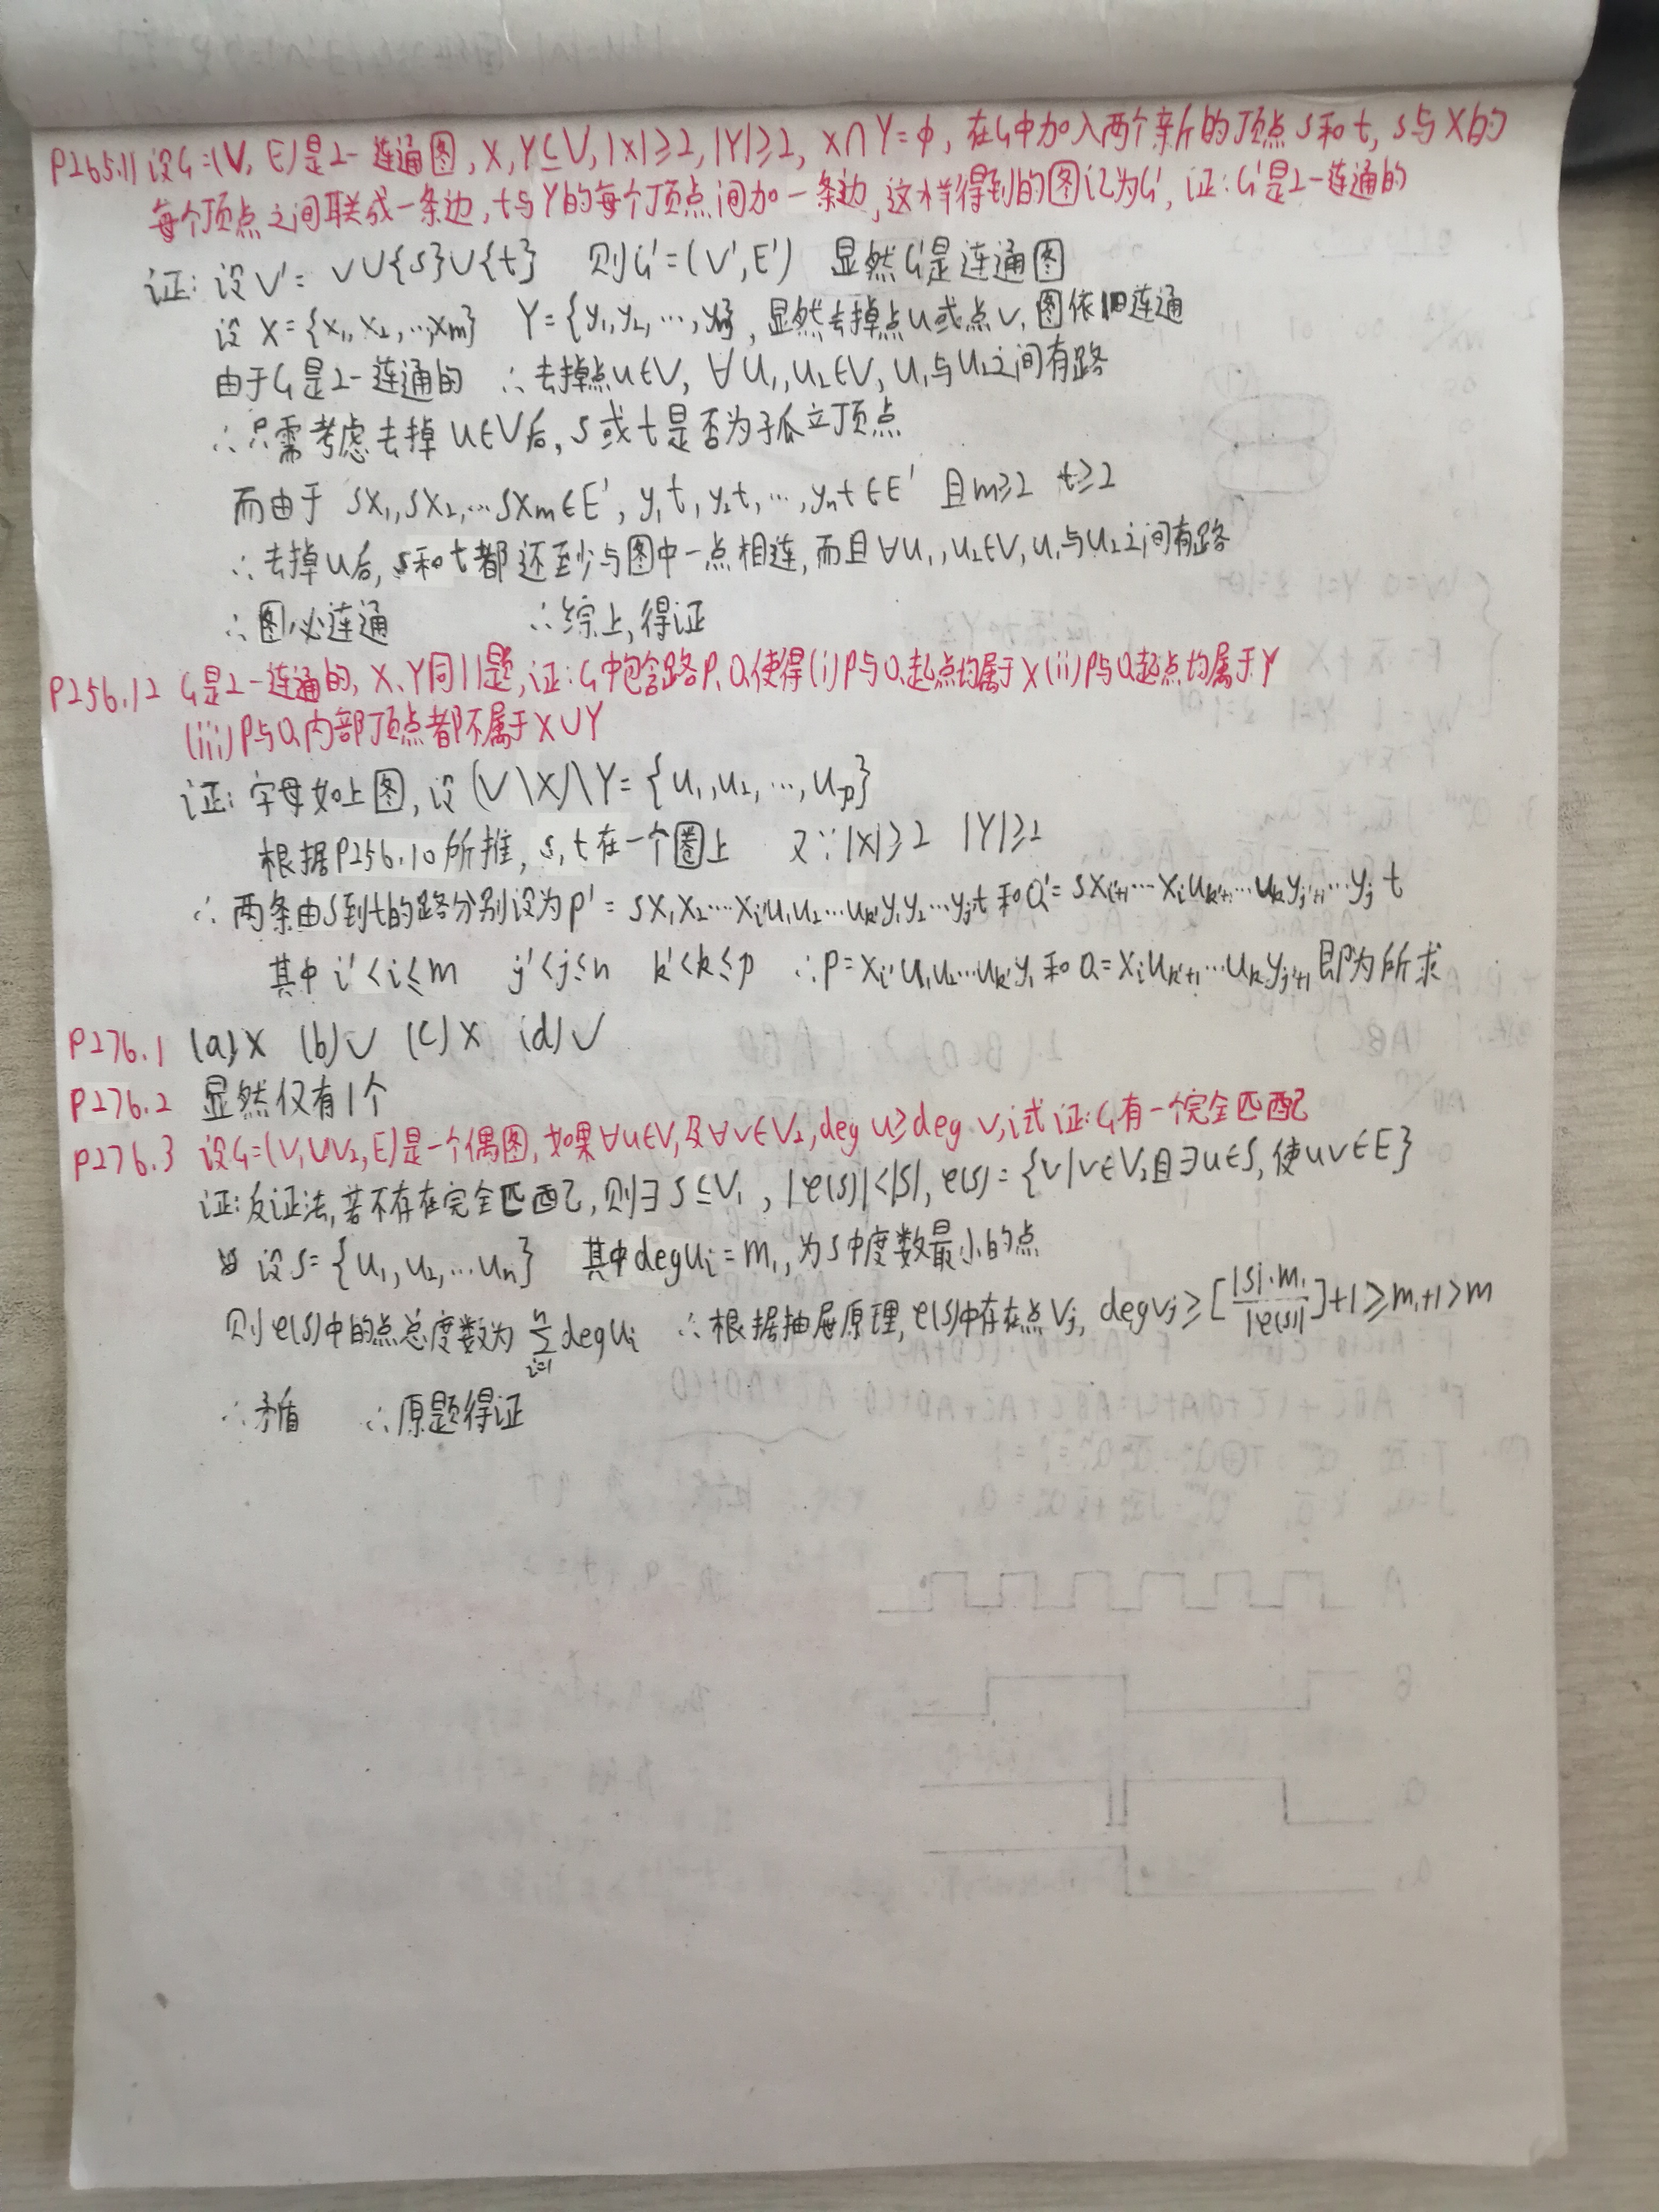 P265.11 设G=(V, E)是2-连通图, X, Y⊆V, |X|≥2, |Y|≥2, X∩Y=φ, 在G中加入两个新的顶点s和t, s与X的
每个顶点之间联成一条边, t与Y的每个顶点间加一条边, 这样得到的图记为G', 证: G'是2-连通的
证: 设V'= V∪{s}∪{t} 则G'=(V', E') 显然G'是连通图
设X={x₁, x₂, …, xm} Y={y₁, y₂, …, yn}, 显然去掉点u或点v, 图依旧连通
由于G是2-连通的 ∴去掉点u∈V, ∀u₁, u₂∈V, u₁与u₂之间有路
∴只需考虑去掉u∈V后, s或t是否为孤立顶点
而由于 sx₁, sx₂, …sxm∈E', y₁t, y₂t, …, ynt∈E' 且m≥2 t≥2
∴去掉u后, s和t都还至少与图中一点相连, 而且∀u₁, u₂∈V, u₁与u₂之间有路
∴图必连通 ∴综上, 得证
P256.12 G是2-连通的, X、Y同11题, 证: G中包含路P、Q使得(i)P与Q起点均属于X (ii)P与Q起点均属于Y
(iii)P与Q内部顶点都不属于X∪Y
证: 字母如上图, 设(V\X)\Y={u₁, u₂, …, up}
根据P256.10所推, s, t在一个圈上 又∵|X|≥2 |Y|≥2
∴两条由s到t的路分别设为P'=sx₁x₂…xi'u₁u₂…uk'y₁y₂…yj't和Q'=sxi'+1…xiuk'+1…ukyj'+1…yj t
其中i'<i≤m j'<j≤n k'<k≤p ∴P=xi'u₁u₂…uk'y₁和Q=xiuk'+1…ukyj'+1即为所求
P276.1 (a)× (b)√ (c)× (d)√
P276.2 显然仅有1个
P276.3 设G=(V₁∪V₂, E)是一个偶图, 如果∀u∈V₁及∀v∈V₂, deg u≥deg v, 试证: G有一个完全匹配
证: 反证法, 若不存在完全匹配, 则∃S⊆V₁, |φ(S)|<|S|, φ(S)={v|v∈V₂且∃u∈S, 使uv∈E}
设S={u₁, u₂, …un} 其中deg ui=m₁, 为S中度数最小的点
则φ(S)中的点总度数为 ∑ⁿᵢ₌₁ deg ui ∴根据抽屉原理, φ(S)中存在点vj, deg vj≥[|S|·m₁/|φ(S)|]+1≥m₁+1>m
∴矛盾 ∴原题得证